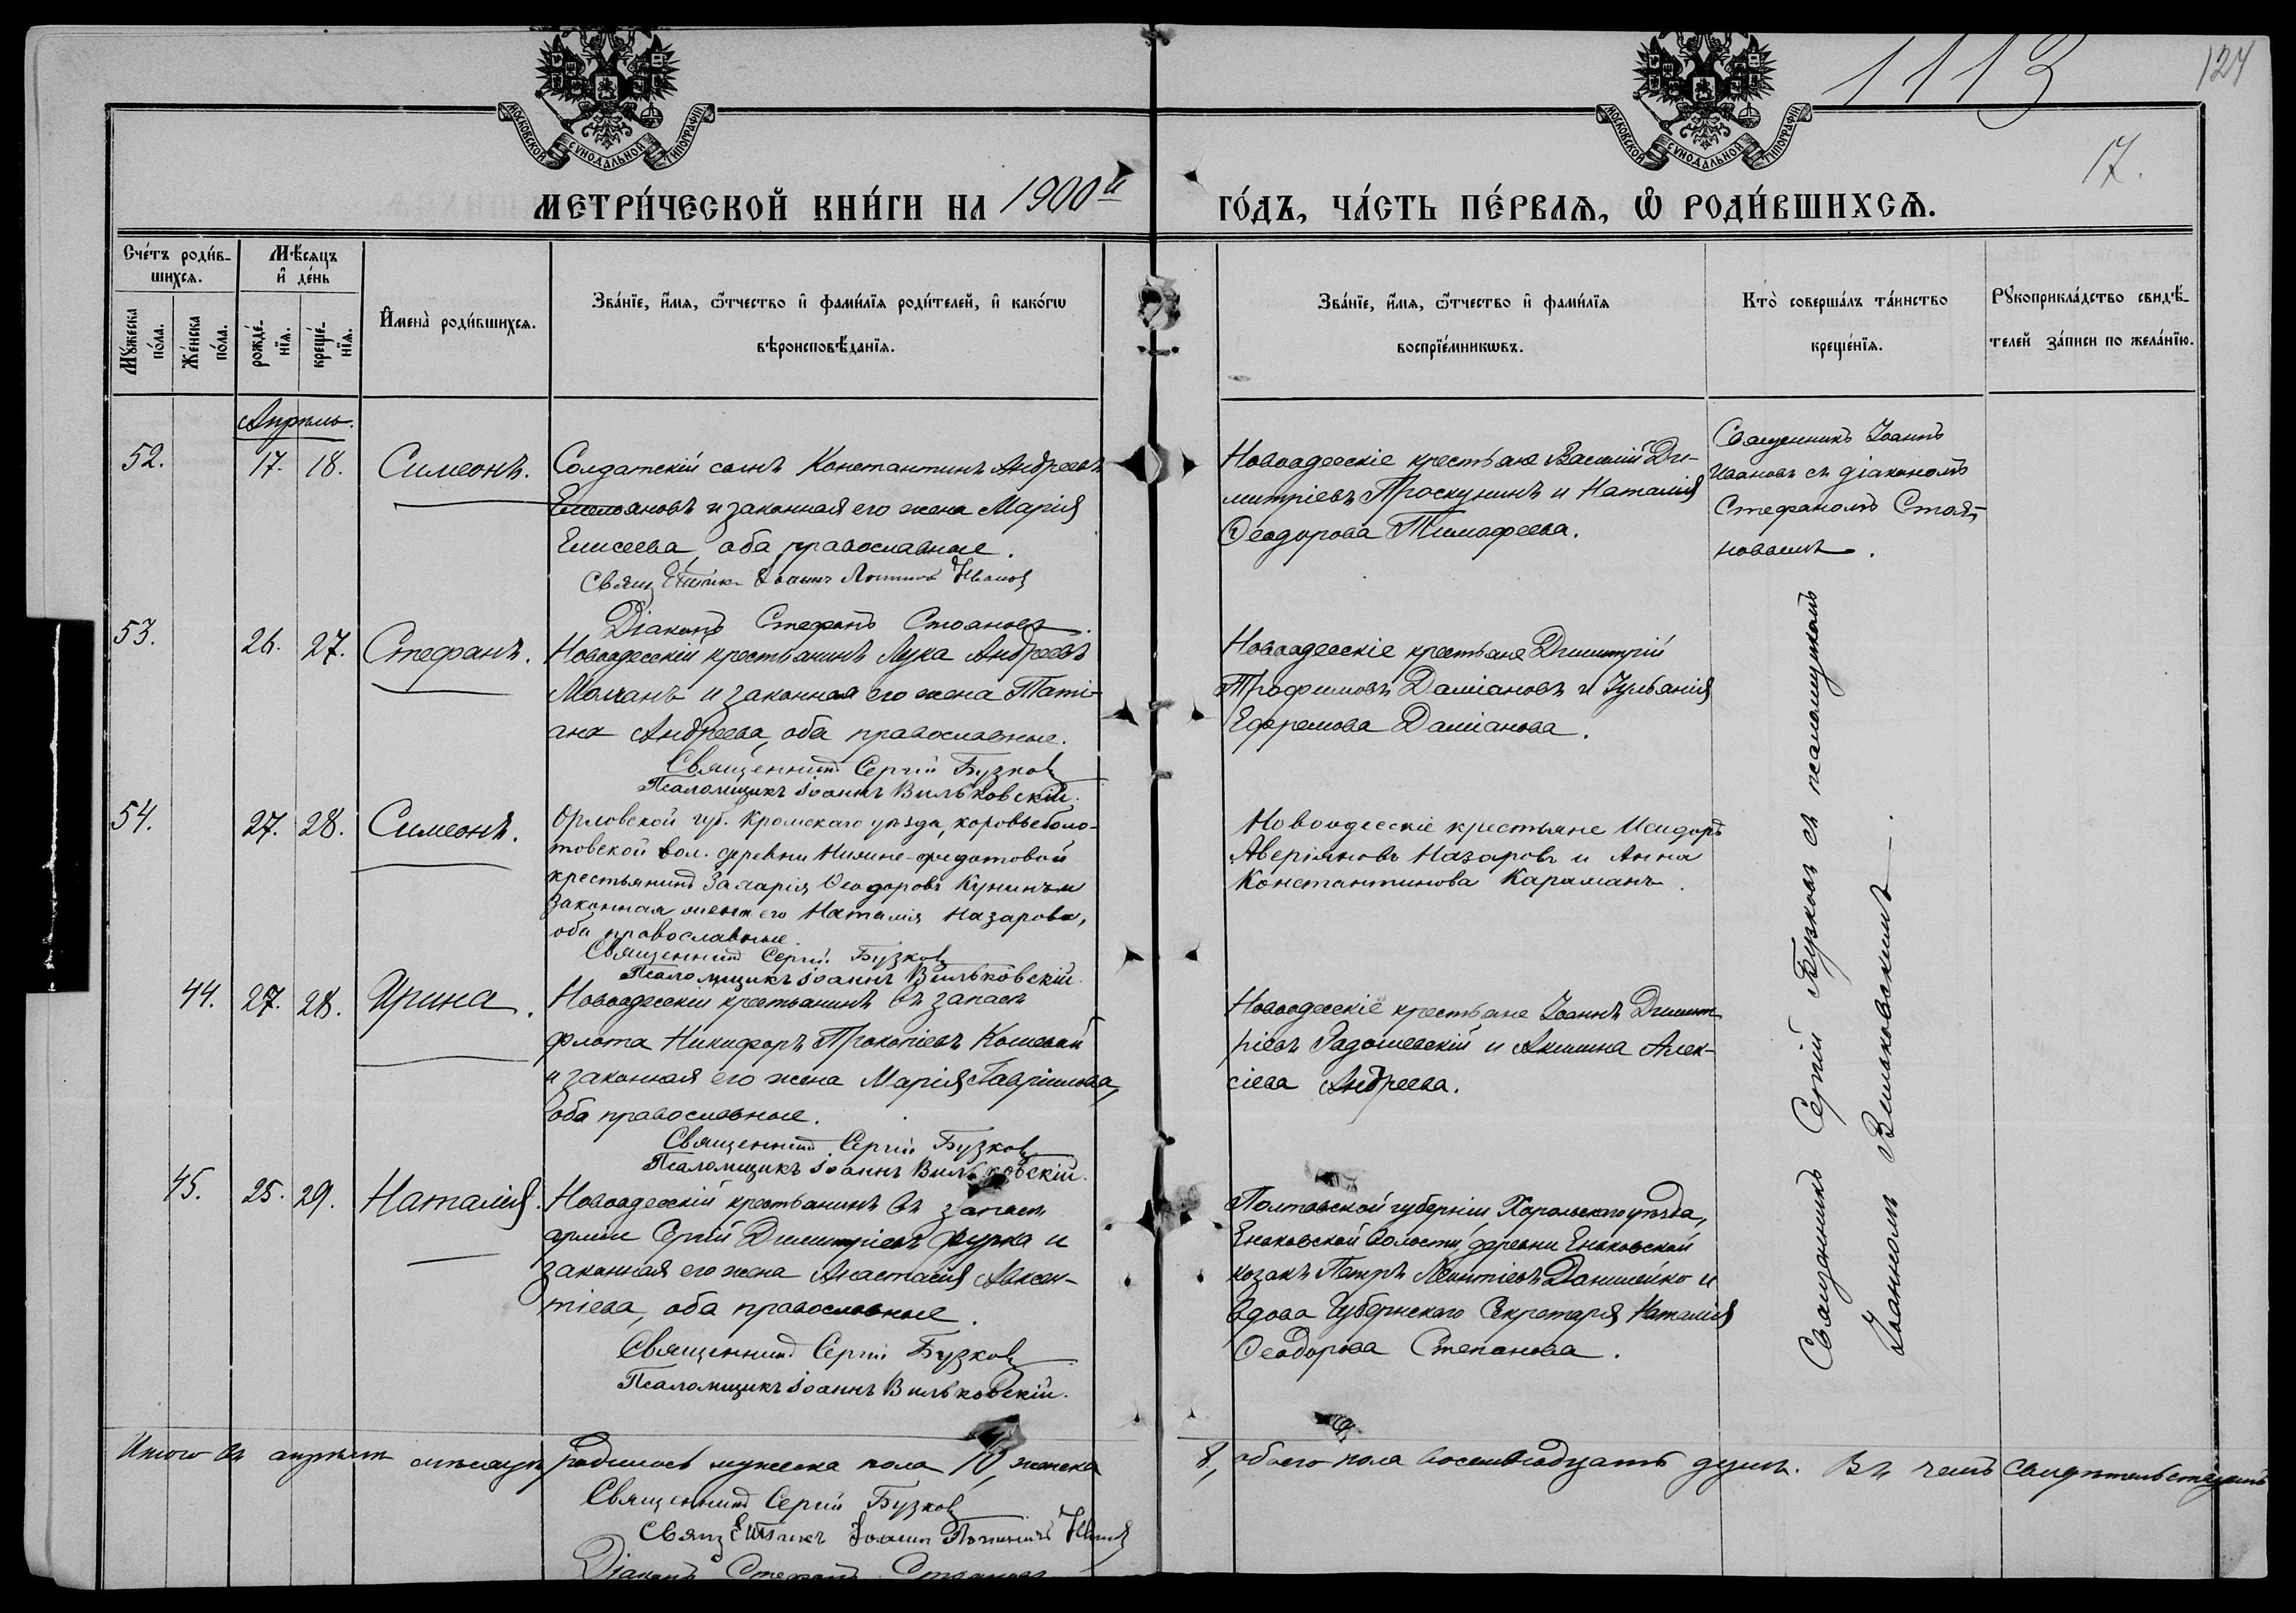 1113
124
17.
МОСКОВСКОЙ СѴНОДАЛЬНОЙ ТИПОГРАФІИ
МОСКОВСКОЙ СѴНОДАЛЬНОЙ ТИПОГРАФІИ
МЕТРИ́ЧЕСКОЙ КНИ́ГИ НА 1900й ГО́ДЪ, ЧА́СТЬ ПЕ́РВАѦ, Ѡ РОДИ́ВШИХСѦ.
Сче́тъ роди́в-
шихсѧ.
Мꙋ́жеска по́ла.
Же́нска по́ла.
Мѣ́сѧцъ и де́нь
рожде́-
нїѧ.
креще́-
нїѧ.
Имена̀ роди́вшихсѧ.
Зва́нїе, и́мѧ, ѻ́тчество и фами́лїѧ роди́телей, и како́гѡ
вѣроисповѣ́данїѧ.
Зва́нїе, и́мѧ, ѻ́тчество и фами́лїѧ
воспрїе́мникѡвъ.
Кто̀ соверша́лъ та́инство
креще́нїѧ.
Рꙋкоприкла́дство свидѣ́-
телей за́писи по жела́нїю.
Апрѣль.
52. 17. 18. Симеонъ.
Солдатскій сынъ Константинъ Андреевъ
Емельяновъ и законная его жена Марія
Елисеева, оба православные.
Іоаннъ Ивановъ
Діаконъ Стефанъ Стояновъ.
Новоодесскіе крестьяне Василій Ди-
митріевъ Проскунинъ и Наталія
Ѳеодорова Тимофеева.
Священникъ Іоаннъ
Ивановъ съ діакономъ
Стефаномъ Стоя-
новымъ.
53. 26. 27. Стефанъ.
Новоодесскій крестьянинъ Лука Андреевъ
и законная его жена Таті-
ана Андреева, оба православные.
Священникъ Сергій Бузковъ
Псаломщикъ Іоаннъ Вильковскій.
Новоодесскіе крестьяне Димитрій
Трофимовъ Даміановъ и Іуліанія
Ефремова Даміанова.
54. 27. 28. Симеонъ.
Орловской губ. Кромскаго уѣзда, коровьеболо-
товской вол. деревни
крестьянинъ Захарія Ѳеодоровъ Кунинъ и
законная жена его Наталія Назарова,
оба православные.
Священникъ Сергій Бузковъ
Псаломщикъ Іоаннъ Вильковскій.
Новоодесскіе крестьяне Исидоръ
Аверіяновъ Назаровъ и Анна
Константинова Караманъ.
44. 27. 28. Ирина.
Новоодесскій крестьянинъ въ запасѣ
флота Никифоръ Прокопіевъ Кошевой
и законная его жена Марія Гавріилова,
оба православные.
Священникъ Сергій Бузковъ
Псаломщикъ Іоаннъ Вильковскій.
Новоодесскіе крестьяне Іоаннъ Димит-
ріевъ Радошевскій и Акилина Алек-
сіева Андреева.
45. 25. 29. Наталія.
Новоодесскій крестьянинъ въ запасѣ
арміи Сергій Димитріевъ Фурка и
законная его жена Анастасія Авксен-
тіева, оба православные.
Священникъ Сергій Бузковъ
Псаломщикъ Іоаннъ Вильковскій.
Полтавской губерніи Хорольскаго уѣзда,
Енаковской волости, деревни Енаковской
козакъ Петръ Леонтіевъ Данилейко и
вдова Губернскаго Секретаря Наталія
Ѳеодорова Степанова.
Священникъ Сергій Бузковъ съ псаломщикомъ
Іоанномъ Вильковскимъ.
Итого въ апрѣлѣ мѣсяцѣ родилось мужеска пола 10, женска 8, обоего пола восемнадцать душъ. Въ чемъ свидѣтельствуемъ
Священникъ Сергій Бузковъ
Іоаннъ
Діаконъ Стефанъ Стояновъ